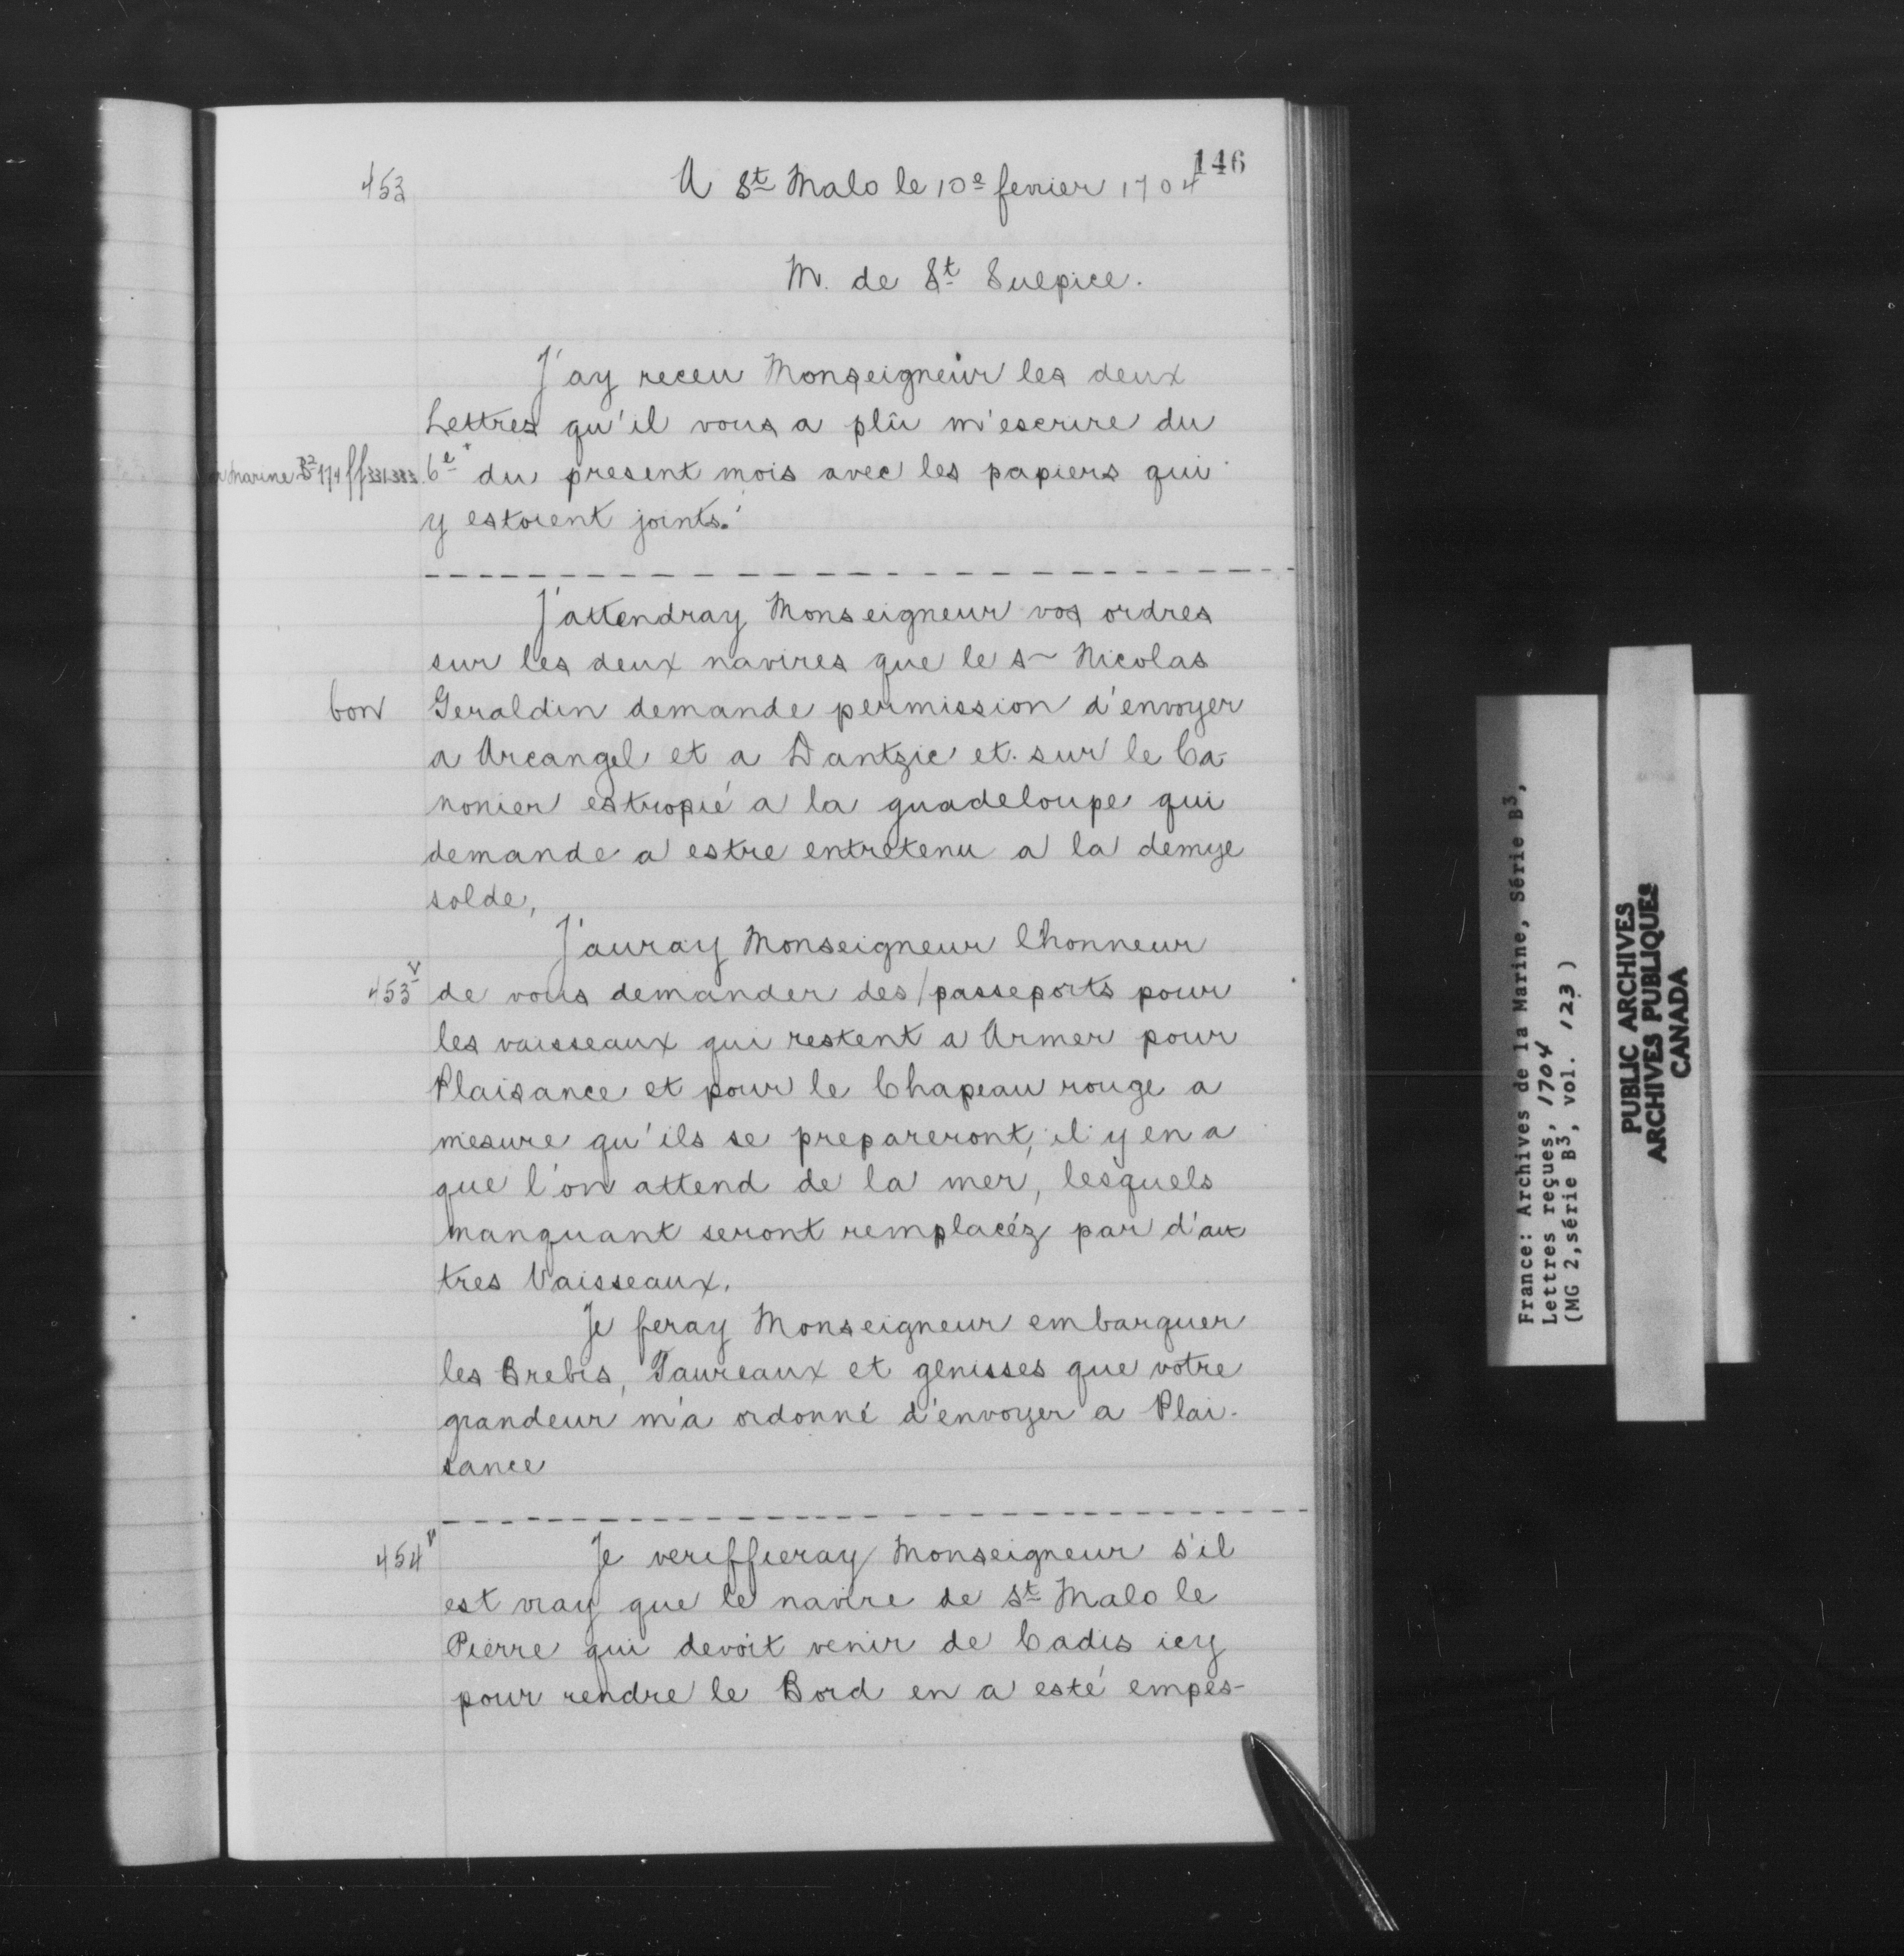 146
453
A St Malo le 10e fevrier 1704
M. de St Sulpice.
J'ay receu Monseigneur les deux
Lettres qu'il vous a plû m'escrire du
Marine B2 174 ff 331.383
6e* du present mois avec les papiers qui
y estoient joints.
J'attendray Monseigneur vos ordres
sur les deux navires que le sr Nicolas
bon
Geraldin demande permission d'envoyer
a Arcangel et a Dantzic et sur le Ca-
nonier estropié a la guadeloupe qui
demande a estre entretenu a la demye
solde,
J'auray Monseigneur lhonneur
453v
de vous demander des/passeports pour
les vaisseaux qui restent a Armer pour
Plaisance et pour le Chapeau rouge a
mesure qu'ils se prepareront, il y en a
que l'on attend de la mer, lesquels
manquant seront remplacéz par d'au
tres Vaisseaux.
Je feray Monseigneur embarquer
les Brebis, Taureaux et genisses que votre
grandeur m'a ordonné d'envoyer a Plai-
sance
454v
Je veriffieray Monseigneur s'il
est vray que le navire de St Malo le
Pierre qui devoit venir de Cadis icy
pour rendre le Bord en a esté empes-
France: Archives de la Marine, Série B3,
Lettres reçues, 1704
(MG 2, série B3, vol. 123)
PUBLIC ARCHIVES
ARCHIVES PUBLIQUES
CANADA